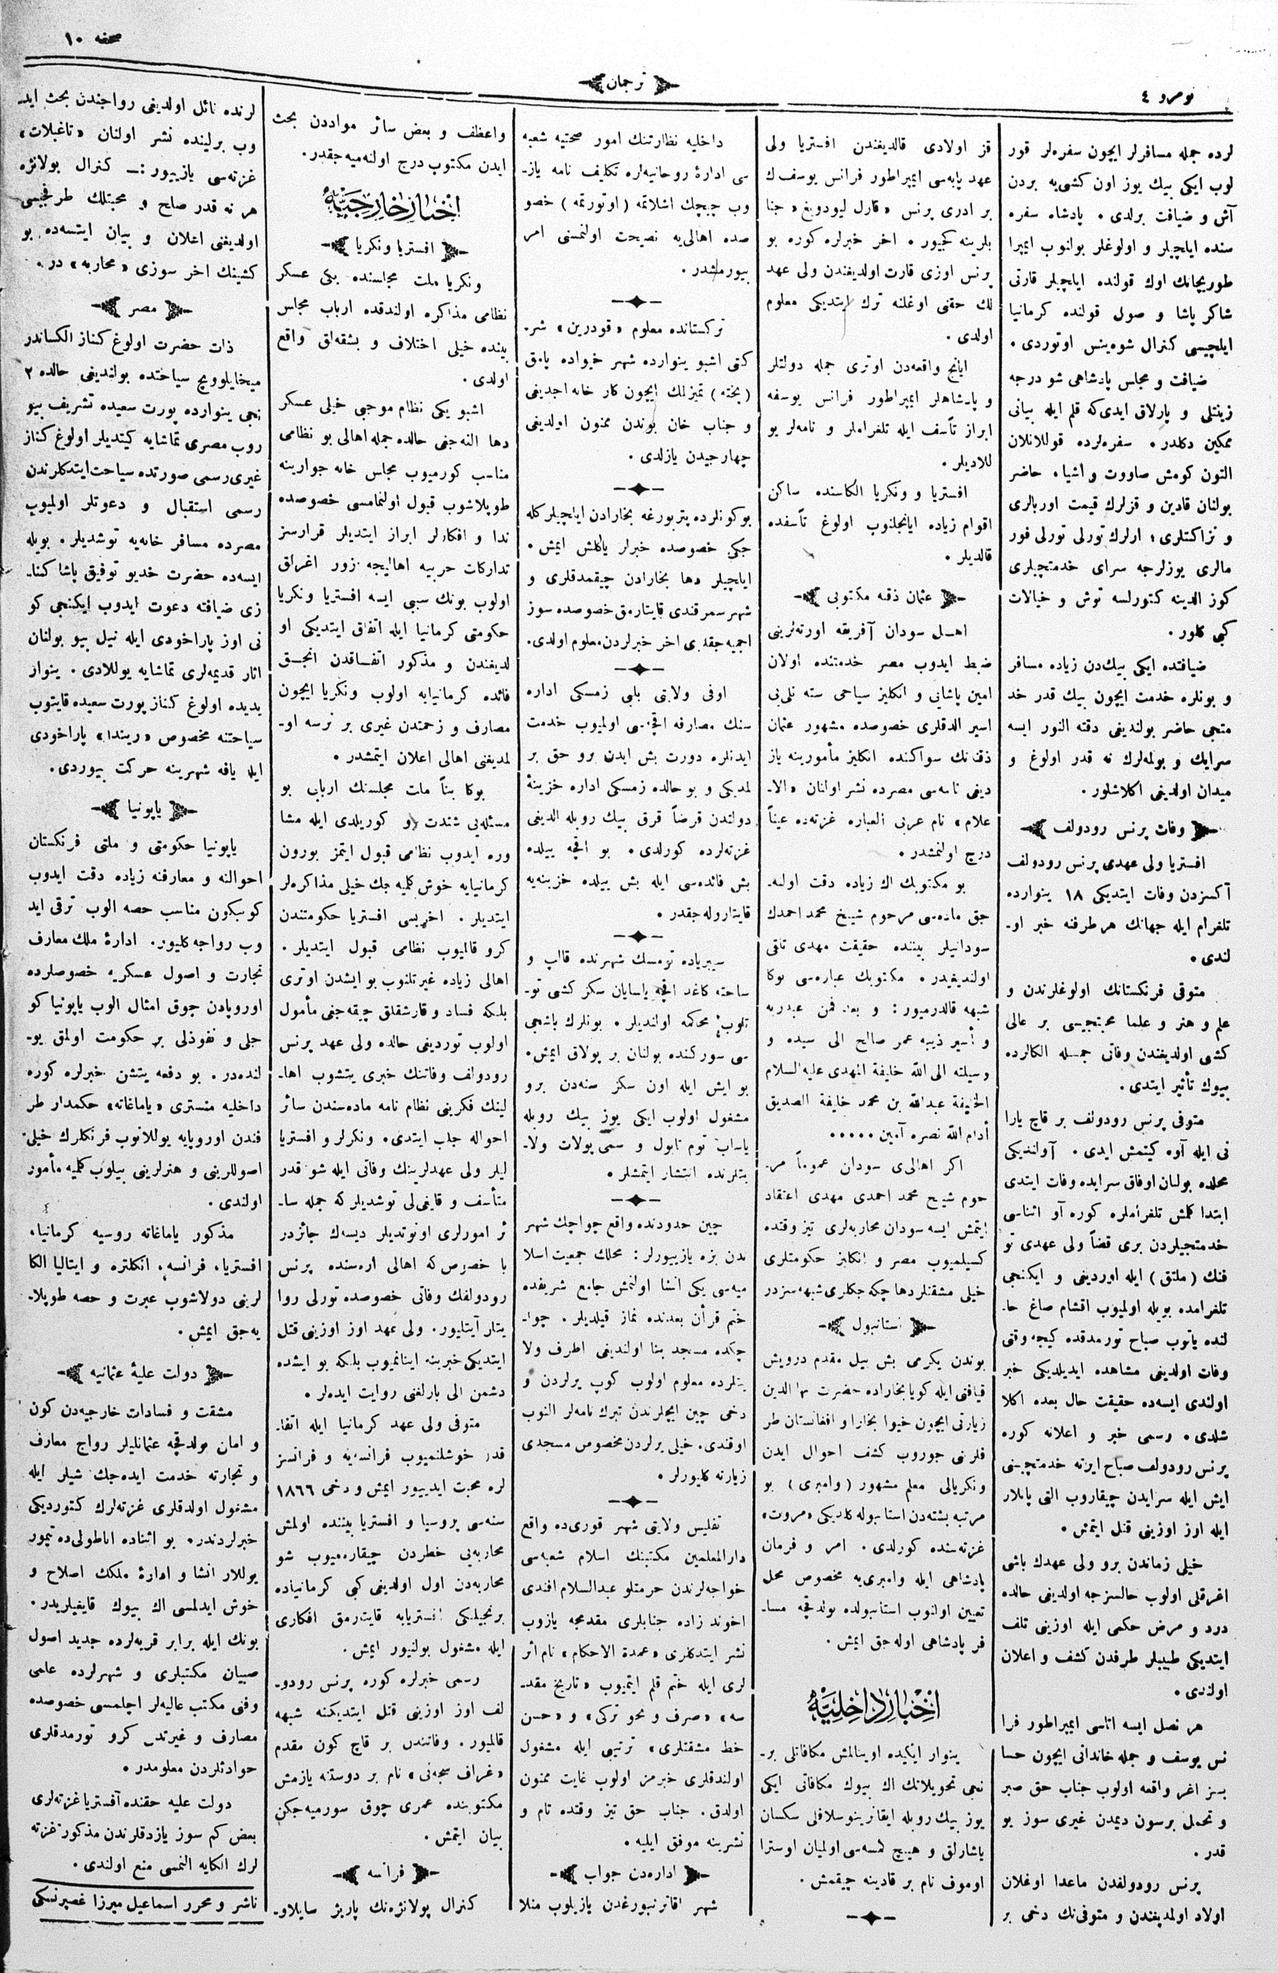 صحفه ١٠
ترجمان
نومرو ٤
لرده جمله مسافرلر ايچون سفره‌لر قور
لوب ايكى بيك يوز اون كشى‌يه بردن
آش و ضيافت برلدى. پادشاه سفره
سنده ايلچيلر و اولوغلر بولنوب ايمپرا
طوريچانك اوك قولنده ايلچيلر قارتى
شاكر پاشا و صول قولنده كرمانيا
ايلچيسى كنرال شوه‌ينس اوتوردى.
ضيافت و مجلس پادشاهى شو درجه
زينتلى و پارلاق ايدى‌كه قلم ايله بيانى
ممكين دكلدر. سفره‌لرده قوللانلان
التون كومش صاووت و اشيا، حاضر
بولنان قادين و قزلرك قيمت اوربالرى
و نزاكتلرى؛ ارلرك تورلى تورلى فور
مالرى يوزلرجه سراى خدمتچيلرى
كوز الدينه كتورلسه توش و خيالات
كبى كلور.
ضيافتده ايكى بيك‌دن زياده مسافر
و بونلره خدمت ايچون بيك قدر خد
متجى حاضر بولنديغى دقته النور ايسه
سرايك و بولمه‌لرك نه قدر اولوغ و
ميدان اولديغى اكلاشلور.
وفات پرنس رودولف
افستريا ولى عهدى پرنس رودولف
آكسزدن وفات ايتديكى ١٨ ينوارده
تلغرام ايله جهانك هر طرفنه خبر او-
لندى.
متوفى فرنكستانك اولوغلرندن و
علم و هنر و علما محبتچيسى بر عالى
كشى اولديغندن وفاتى جمله الكالرده
بيوك تأثير ايتدى.
متوفى پرنس رودولف بر قاچ يارا
نى ايله آوه كيتمش ايدى. آولنديكى
محلده بولنان اوفاق سرايده وفات ايتدى
ابتدا كلمش تلغراملره كوره آو اثناسى
خدمتچيلردن برى قضاً ولى عهدى تو
فنك (ملتق) ايله اورديغى و ايكنجى
تلغرامده بويله اولميوب اقشام صاغ حا-
لنده ياتوب صباح تورمدقده كيچه وقتى
وفات اولديغى مشاهده ايديلديكى خبر
اولندى ايسه‌ده حقيقت حال بعده اكلا
شلدى. رسمى خبر و اعلانه كوره
پرنس رودولف صباح ايرته خدمتچيسنى
ايش ايله سرايدن چيقاروب التى پانلار
ايله اوز اوزينى قتل ايتمش.
خيلى زماندن برو ولى عهدك باشى
اغرقلى اولوب حالسزجه اولديغى حالده
درد و مرض حكمى ايله اوزينى تلف
ايتديكى طبيبلر طرفدن كشف و اعلان
اولندى.
هر نصل ايسه اتاسى ايمپراطور فرا
نس يوسف و جمله خاندانى ايچون حسا
بسز اغر واقعه اولوب جناب حق صبر
و تحمل برسون ديمدن غيرى سوز يو
قدر.
پرنس رودولفدن ماعدا اوغلان
اولاد اولمديغندن و متوفى‌نك دخى بر
قز اولادى قالديغندن افستريا ولى
عهد پايه‌سى ايمپراطور فرانس يوسف‌ك
بر ادرى پرنس «قارل ليودويغ» جنا
بلرينه كچيور. اخر خبرلره كوره بو
پرنس اوزى قارت اولديغندن ولى عهد
لك حقى اوغلنه ترك ايتديكى معلوم
اولدى.
ايانج واقعه‌دن اوترى جمله دولتلر
و پادشاهلر ايمپراطور فرانس يوسفه
ابراز تأسف ايله تلغراملر و نامه‌لر يو
للاديلر.
افستريا و ونكريا الكاسنده ساكن
اقوام زياده ايانجلنوب اولوغ تأسفده
قالديلر.
عثمان دقنه مكتوبى
اهل سودان آفريقه اورته‌ليرينى
ضبط ايدوب مصر خدمتنده اولان
امين پاشانى و انكليز سياحى ستنه نلى‌نى
اسير الدقلرى خصوصده مشهور عثمان
دقنه‌نك سواكنده انكليز مأمورينه ياز
ديغى نامه‌سى مصرده نشر اولنان «الا-
علام» نام عربى العباره غزته‌ده عيناً
درج اولنمشدر.
بو مكتوبك اك زياده دقت اولنه-
جق ماده‌سى مرحوم شيخ محمد احمدك
سودانيلر بيننده حقيقت مهدى تاقى
اولنديغيدر. مكتوبك عباره‌سى بوكا
شبهه قالدرميور: و بعد فمن عبدربه
و أسير ذنبه عمر صالح الى سيده و
وسيلته الى الله خليفة المهدى عليه السلام
الخليفة عبدالله بن محمد خليفة الصديق
أدام الله نصره آمين.....
اكر اهالى‌ى سودان عموماً مر-
حوم شيخ محمد احمدى مهدى اعتقاد
ايتمش ايسه سودان محاربه‌لرى تيز وقتده
كسيلميوب مصر و انكليز حكومتلرى
خيلى مشقتلر دها چكه‌جكلرى شبهه سزدر
استانبول
بوندن يكرمى بش ييل مقدم درويش
قيافتى ايله كويا بخاراده حضرت بها الدين
زيارتى ايچون خيوا بخارا و افغانستان طر
فلرنى جوروب كشف احوال ايدن
ونكريالى معلم مشهور (وامبرى) بو
مرتبه پشته‌دن استانبوله كلديكى «مروت»
غزته‌سنده كورلدى. امر و فرمان
پادشاهى ايله وامبرى‌يه مخصوص محل
تعيين اولنوب استانبولده بولدقچه مسا-
فر پادشاهى اوله‌جق ايمش.
اخبار داخليه
ينوار ايكيده اوينالمش مكافاتلى بر-
نجى تحويلاتك اك بيوك مكافاتى ايكى
يوز بيك روبله ايقاترينوسلاقلى سكسان
ياشارلق و هيچ كمسه‌سى اولميان اوسترا
اوموف نام بر قادينه چيقمش.
داخليه نظارتنك امور صحتيه شعبه
سى ادارهٔ روحانيه‌لره تكليف نامه ياز-
وب چيچك اشلاتمه (اوتورتمه) خصو
صده اهالى‌يه نصيحت اولنمسنى امر
بيورمشدر.
تركستانده معلوم «قودرين» شر-
كتى اشبو ينوارده شهر خيواده پامق
(پخته) تميزلمك ايچون كار خانه اجديغى
و جناب خان بوندن ممنون اولديغى
چهارجيدن يازلدى.
بوكونلرده پتربورغه بخارادن ايلچيلر كله
جكى خصوصده خبرلر ياكلش ايمش.
ايلچيلر دها بخارادن چيقمدقلرى و
شهر سمرقندى قايتارمق خصوصده سوز
اجميه‌جقلرى اخر خبرلردن معلوم اولدى.
اوفى ولايتى بلبى زمسكى اداره
سنك مصارفه اقچه‌سى اولميوب خدمت
ايدنلره دورت بش ايدن برو حق بر
لمديكى و بو حالده زمسكى اداره خزينهٔ
دولتدن قرضاً قرق بيك روبله الديغى
غزته‌لرده كورلدى. بو اقچه ييلده
بش فائده‌سى ايله بش ييلده خزينه‌يه
قايتاروله جقدر.
سيبرياده تومسك شهرنده قالپ و
ساخته كاغد اقچه ياسايان سكز كشى تو-
تلوب محكمه اولنديلر. بونلرك باشجى
سى سوركنده بولنان بر پولاق ايمش.
بو ايش ايله اون سكز سنه‌دن برو
مشغول اولوب ايكى يوز بيك روبله
ياساب توم تابول و سمى پولات ولا-
يتلرنده انتشار ايتمشلر.
چين حدودنده واقع چواچك شهر
ندن بزه يازييورلر: محلك جمعيت اسلا
ميه‌سى يكى انشا اولنمش جامع شريفده
ختم قرأن بعدنده نماز قيلديلر. چوا-
چكده مسجد بنا اولنديغى اطرف ولا
يتلرده معلوم اولوب كوپ يرلردن و
دخى چين ايچلرندن تبرك نامه‌لر النوب
اوقندى. خيلى يرلردن مخصوص مسجدى
زيارته كليورلر.
تفليس ولايتى شهر قورى‌ده واقع
دارالمعلمين مكتبنك اسلام شعبه‌سى
خواجه‌لرندن حرمتلو عبدالسلام افندى
اخوند زاده جنابلرى مقدمجه يازوب
نشر ايتدكلرى «عمدة الاحكام» نام اثر
لرى ايله ختم قلم ايتميوب «تاريخ مقد-
سه» «صرف و نحو تركى» و «حسن
خط مشقتلرى» ترتيبى ايله مشغول
اولندقلرى خبرمز اولوب غايت ممنون
اولدق. جناب حق تيز وقتده تام و
نشرينه موفق ايليه.
اداره‌دن جواب
شهر اقاترنبورغدن يازيلوب منلا
واعظلف و بعض سائر مواددن بحث
ايدن مكتوب درج اولنه ميه جقدر.
اخبار خارجيه
افستريا ونكريا
ونكريا ملت مجلسنده يكى عسكر
نظامى مذاكره اولندقده ارباب مجلس
بيننده خيلى اختلاف و بشقه‌لق واقع
اولدى.
اشبو يكى نظام موجبى خيلى عسكر
دها النه‌جغى حالده جمله اهالى بو نظامى
مناسب كورميوب مجلس خانه جوارينه
طوپلاشوب قبول اولنمامسى خصوصده
ندا و افكارلر ابراز ايتديلر قرارسز
تداركات حربيه اهاليجه زور اغرلق
اولوب بونك سببى ايسه افستريا ونكريا
حكومتى كرمانيا ايله اتفاق ايتديكى او
لديغندن و مذكور اتفاقدن انجق
فائده كرمانيايه اولوب ونكريا ايچون
مصارف و زحمتدن غيرى بر نرسه او-
لمديغنى اهالى اعلان ايتمشدر.
بوكا بنأ ملت مجلسنك اربابى بو
مسئله‌يى شدت و كوريلدى ايله مشا
وره ايدوب نظامى قبول ايتمز بورون
كرمانيايه خوش كلميه جك خيلى مذاكره‌لر
ايتديلر. اخريسى افستريا حكومتندن
كرو قالميوب نظامى قبول ايتديلر.
اهالى زياده غيرتلنوب بوايشدن اوترى
بلكه فساد و قارشقلق چيقه‌جغى مأمول
اولوب تورديغى حالده ولى عهد پرنس
رودولف وفاتنك خبرى يتشوب اها-
لينك فكرينى نظام نامه ماده‌سندن سائر
احواله جلب ايتدى. ونكرلر و افستريا
ليلر ولى عهدلرينك وفاتى ايله شو قدر
متأسف و قايغى‌لى توشديلر كه جمله سا-
ئر امورلرى اونوتديلر ديسك جائزدر
با خصوص كه اهالى اره‌سنده پرنس
رودولفك وفاتى خصوصده تورلى روا
يتلر آيتليور. ولى عهد اوز اوزينى قتل
ايتديكى خبرينه اينانميوب بلكه بو ايشده
دشمن الى بارلغنى روايت ايدەلر.
متوفى ولى عهد كرمانيا ايله اتفا-
قدن خوشلنميوب فرانسه‌يه و فرانسز
لره محبت ايدييور ايمش و دخى ١٨٦٦
سنه‌سى پروسيا و افستريا بيننده اولمش
محاربه‌يى خطردن چيقارميوب شو
محاربه‌دن اول اولديغى كبى كرمانياده
برنجيلكى افسترياي‌ه قايتارمق افكارى
ايله مشغول بولنيور ايمش.
رسمى خبرلره كوره پرنس رودو-
لف اوز اوزينى قتل ايتديكنه شبهه
قالميور. وفاتندن بر قاچ كون مقدم
«غراف سجه‌نى» نام بر دوستنه يازمش
مكتوبنده عمرى چوق سورميه‌جكن
بيان ايتمش.
فرانسه
كنرال پولانژه‌نك پاريژ سايلاو-
لرنده نائل اولديغى رواجندن بحث ايد-
وب برلينده نشر اولنان «تاغبلات»
غزته‌سى يازييور:— كنرال بولانژه
هر نه قدر صلح و محبتلك طرفجيسى
اولديغنى اعلان و بيان ايتسه‌ده بو
كشينك اخر سوزى «محاربه» در.
مصر
ذات حضرت اولوغ كناز الكساندر
ميخايلوويچ سياحتده بولنديغى حالده ٢
نجى ينوارده پورت سعيده تشريف بيو
روب مصرى تماشايه كيتديلر اولوغ كناز
غيرى رسمى صورتده سياحت ايتدكلرندن
رسمى استقبال و دعوتلر اولميوب
مصرده مسافر خانه‌يه توشديلر. بويله
ايسه‌ده حضرت خديو توفيق پاشا كنا-
زى ضيافته دعوت ايدوب ايكنجى كو
نى اوز پاراخودى ايله نيل بيو بولنان
اثار قديمه‌لرى تماشايه يوللادى. ينوار
يديده اولوغ كناز پورت سعيده قايتوب
سياحتنه مخصوص «ريندا» پاراخودى
ايله يافه شهرينه حركت بيوردى.
ياپونيا
ياپونيا حكومتى و ملتى فرنكستان
احوالنه و معارفنه زياده دقت ايدوب
كوبيكون مناسب حصه الوب ترقى ايد
وب رواجه كليور. ادارهٔ ملك معارف
تجارت و اصول عسكريه خصوصلرده
اوروپادن چوق امثال الوب ياپونيا كو
جلى و نفوذلى بر حكومت اولمق يو-
لنده‌در. بو دفعه يتشن خبرلره كوره
داخليه منسترى «ياماغاته» حكمدار طر
فندن اوروپايه يوللانوب فرنكلرك خيلى
اصوللرينى و هنرلرينى بيلوب كلميه مأمور
اولندى.
مذكور ياماغاته روسيه كرمانيا،
افستريا، فرانسه، انكلتره و ايتاليا الكا
لرينى دولاشوب عبرت و حصه طوپلا-
يه‌جق ايمش.
دولت عليهٔ عثمانيه
مشقت و فسادات خارجيه‌دن كون
و امان بولدقچه عثمانليلر رواج معارف
و تجارته خدمت ايده‌جك شيلر ايله
مشغول اولدقلرى غزته‌لرك كتورديكى
خبرلردندر. بو اثناده اناطولى‌ده تيمور
يوللار انشا و ادارهٔ ملكك اصلاح و
خوش ايدلمسى اك بيوك قايغيلريدر.
بونك ايله برابر قريه‌لرده جديد اصول
صبيان مكتبلرى و شهرلرده علمى
وفنى مكتب عاليه‌لر اچلمسى خصوصده
مصارف و غيرتدن كرو تورمدقلرى
حوادثلردن معلومدر.
دولت عليه حقنده آفستريا غزته‌لرى
بعض كم سوز يازدقلرندن مذكور غزته
لرك الكايه النمسى منع اولندى.
ناشر و محرر اسماعيل ميرزا غصپرنسكى